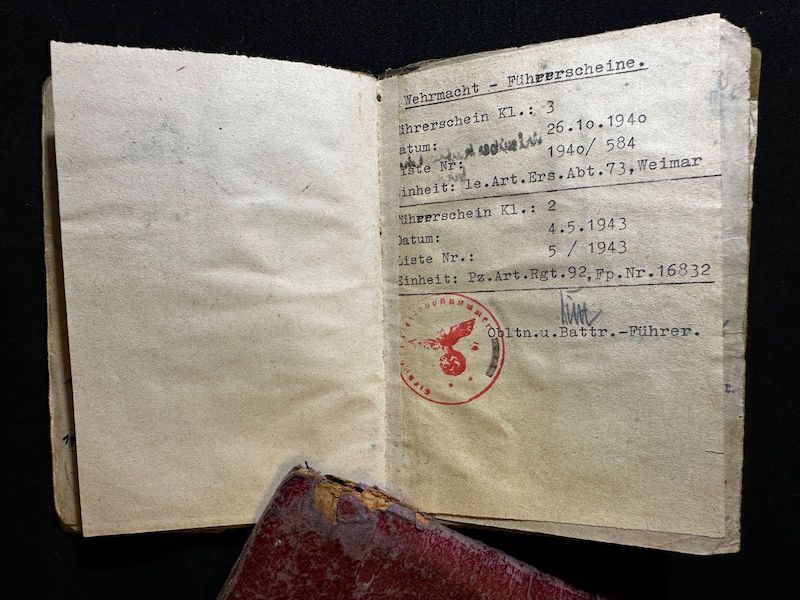 Wehrmacht - Führerscheine.
ührerschein Kl.: 3
atum: 26.1o.194o
iste Nr: 194o/ 584
inheit: le.Art.Ers.Abt.73,Weimar
Führerschein Kl.: 2
Datum: 4.5.1943
Liste Nr.: 5 / 1943
Einheit: Pz.Art.Rgt.92,Fp.Nr.16832
Obltn.u.Battr.-Führer.